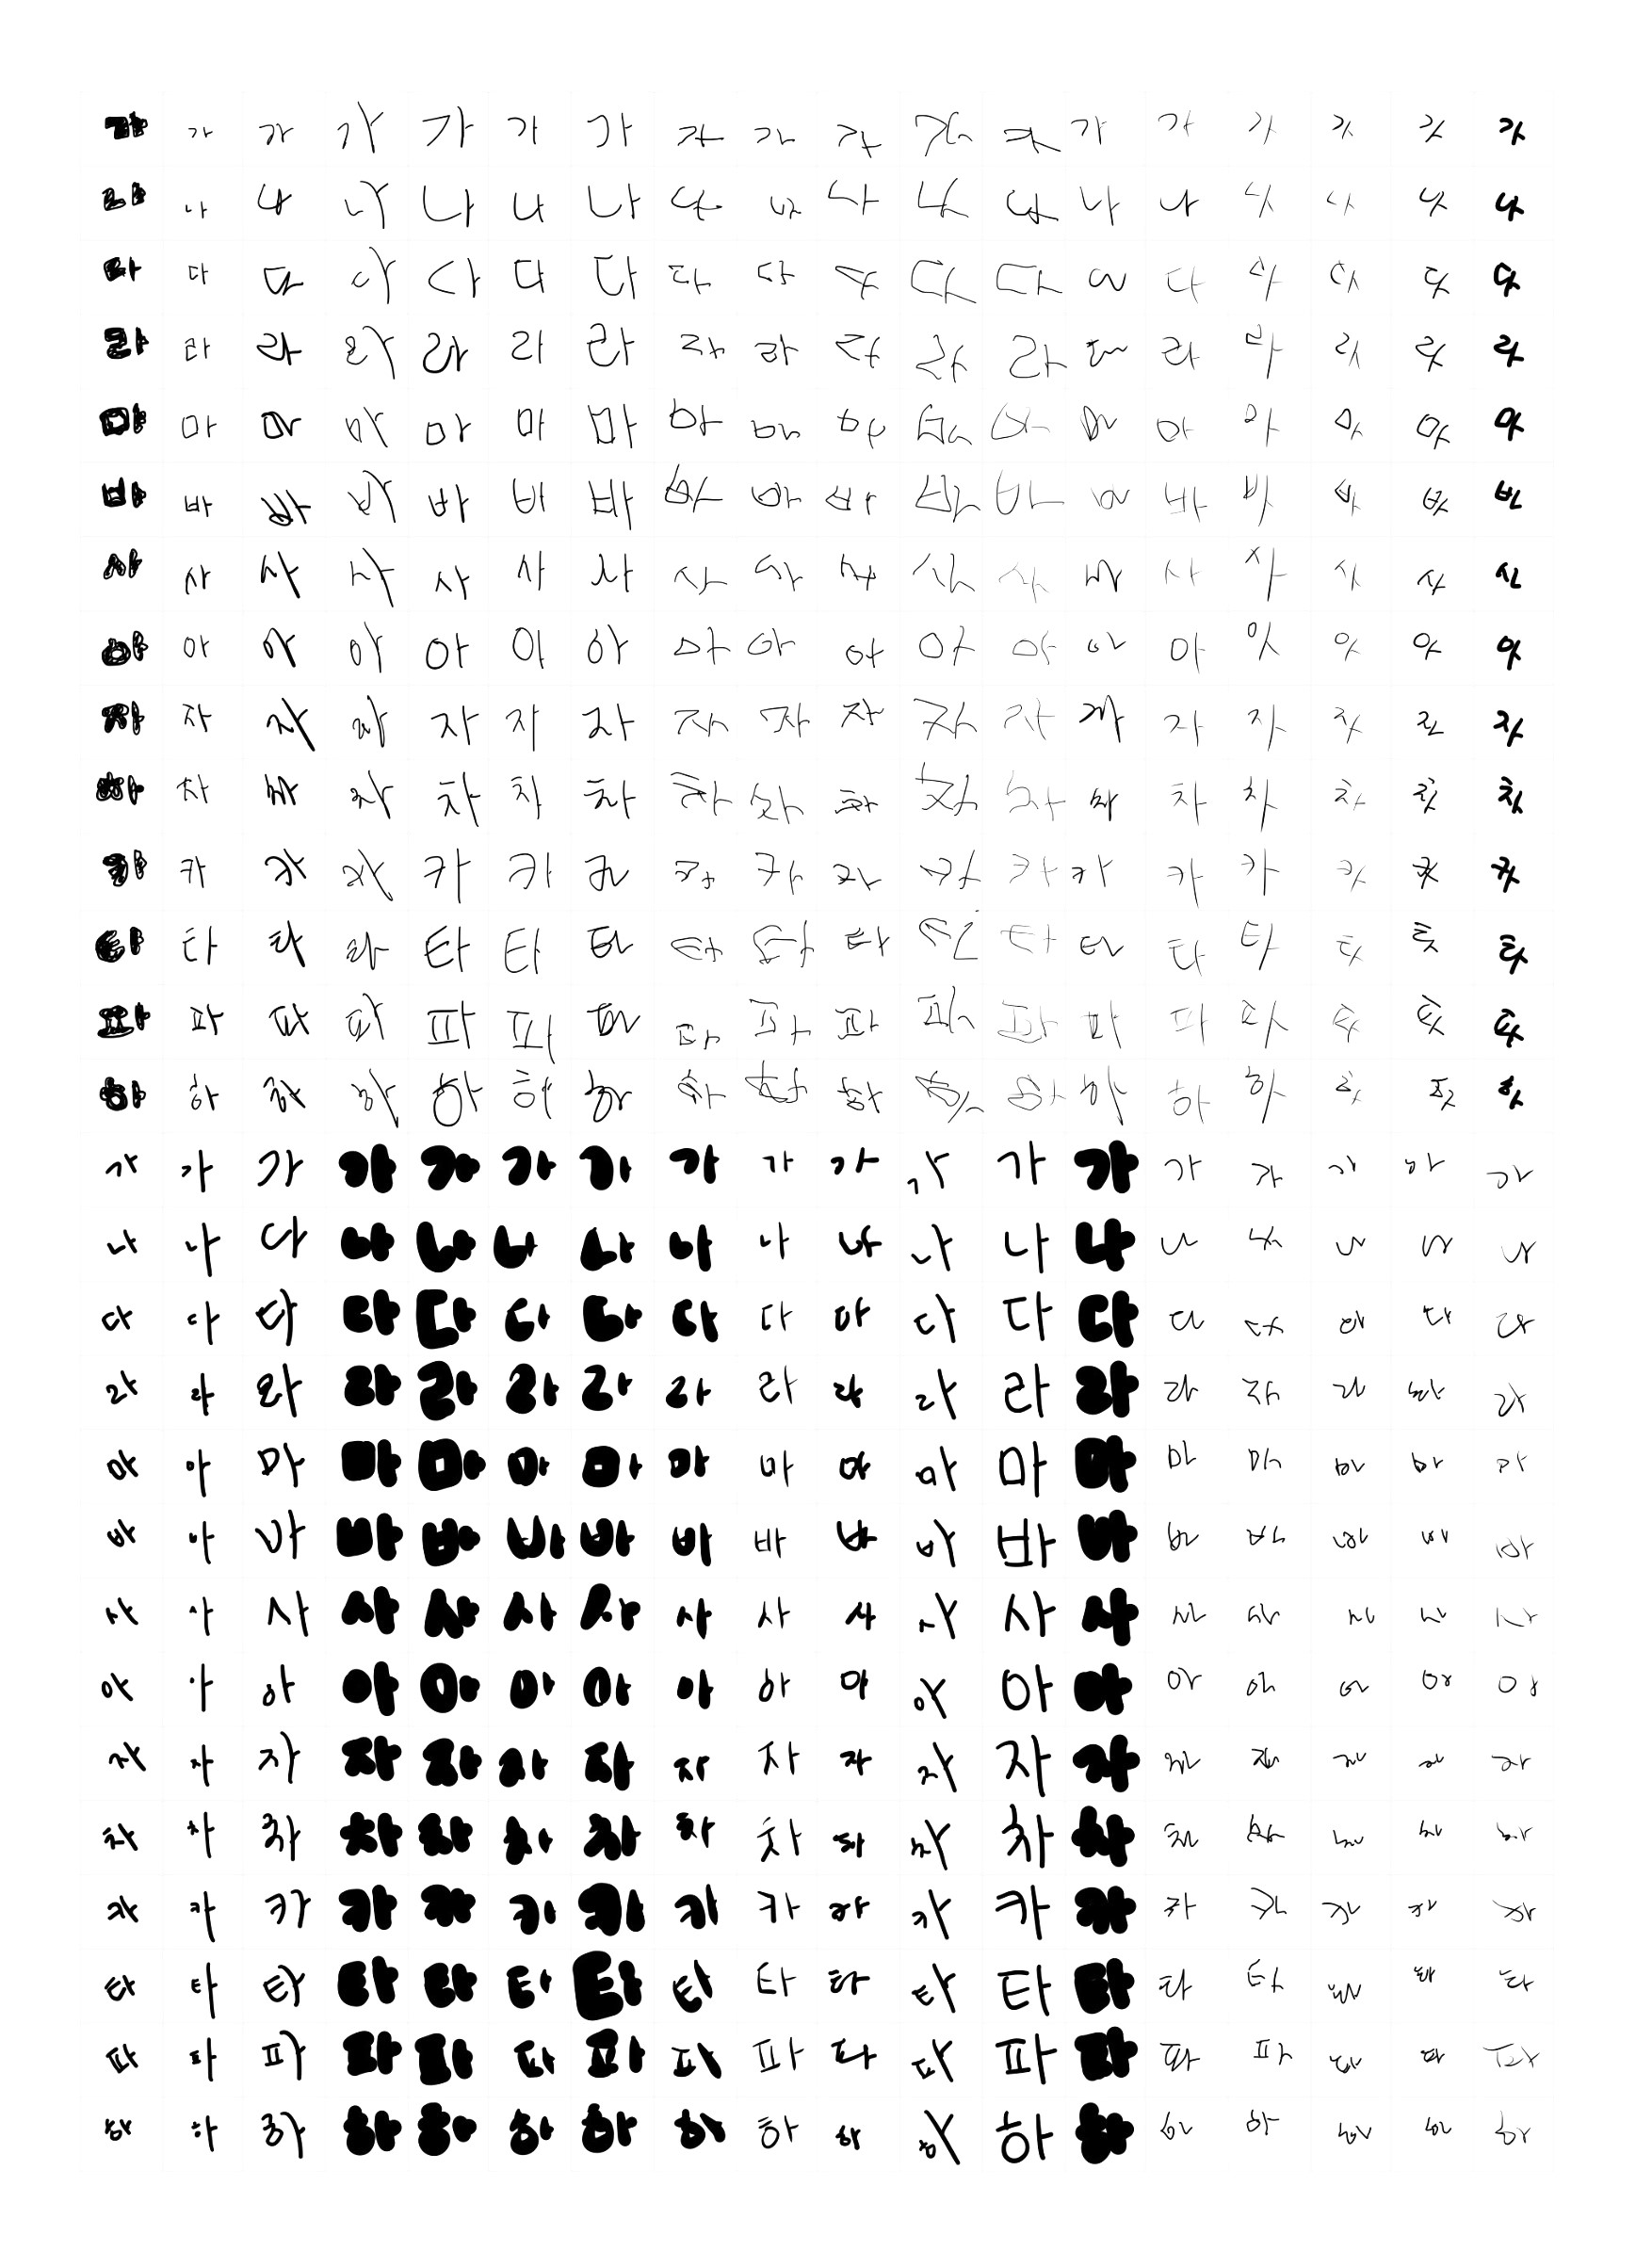 가 가 가 가 가 가 가 가 가 가 가 가 가 가 가 가 가 가
나 나 나 나 나 나 나 나 나 나 나 나 나 나 나 나 나 나
다 다 다 다 다 다 다 다 다 다 다 다 다 다 다 다 다 다
라 라 라 라 라 라 라 라 라 라 라 라 라 라 라 라 라 라
마 마 마 마 마 마 마 마 마 마 마 마 마 마 마 마 마 마
바 바 바 바 바 바 바 바 바 바 바 바 바 바 바 바 바 바
사 사 사 사 사 사 사 사 사 사 사 사 사 사 사 사 사 사
아 아 아 아 아 아 아 아 아 아 아 아 아 아 아 아 아 아
자 자 자 자 자 자 자 자 자 자 자 자 자 자 자 자 자 자
차 차 차 차 차 차 차 차 차 차 차 차 차 차 차 차 차 차
카 카 카 카 카 카 카 카 카 카 카 카 카 카 카 카 카 카
타 타 타 타 타 타 타 타 타 타 타 타 타 타 타 타 타 타
파 파 파 파 파 파 파 파 파 파 파 파 파 파 파 파 파 파
하 하 하 하 하 하 하 하 하 하 하 하 하 하 하 하 하 하
가 가 가 가 가 가 가 가 가 가 가 가 가 가 가 가 가 가
나 나 나 나 나 나 나 나 나 나 나 나 나 나 나 나 나 나
다 다 다 다 다 다 다 다 다 다 다 다 다 다 다 다 다 다
라 라 라 라 라 라 라 라 라 라 라 라 라 라 라 라 라 라
마 마 마 마 마 마 마 마 마 마 마 마 마 마 마 마 마 마
바 바 바 바 바 바 바 바 바 바 바 바 바 바 바 바 바 바
사 사 사 사 사 사 사 사 사 사 사 사 사 사 사 사 사 사
아 아 아 아 아 아 아 아 아 아 아 아 아 아 아 아 아 아
자 자 자 자 자 자 자 자 자 자 자 자 자 자 자 자 자 자
차 차 차 차 차 차 차 차 차 차 차 차 차 차 차 차 차 차
카 카 카 카 카 카 카 카 카 카 카 카 카 카 카 카 카 카
타 타 타 타 타 타 타 타 타 타 타 타 타 타 타 타 타 타
파 파 파 파 파 파 파 파 파 파 파 파 파 파 파 파 파 파
하 하 하 하 하 하 하 하 하 하 하 하 하 하 하 하 하 하